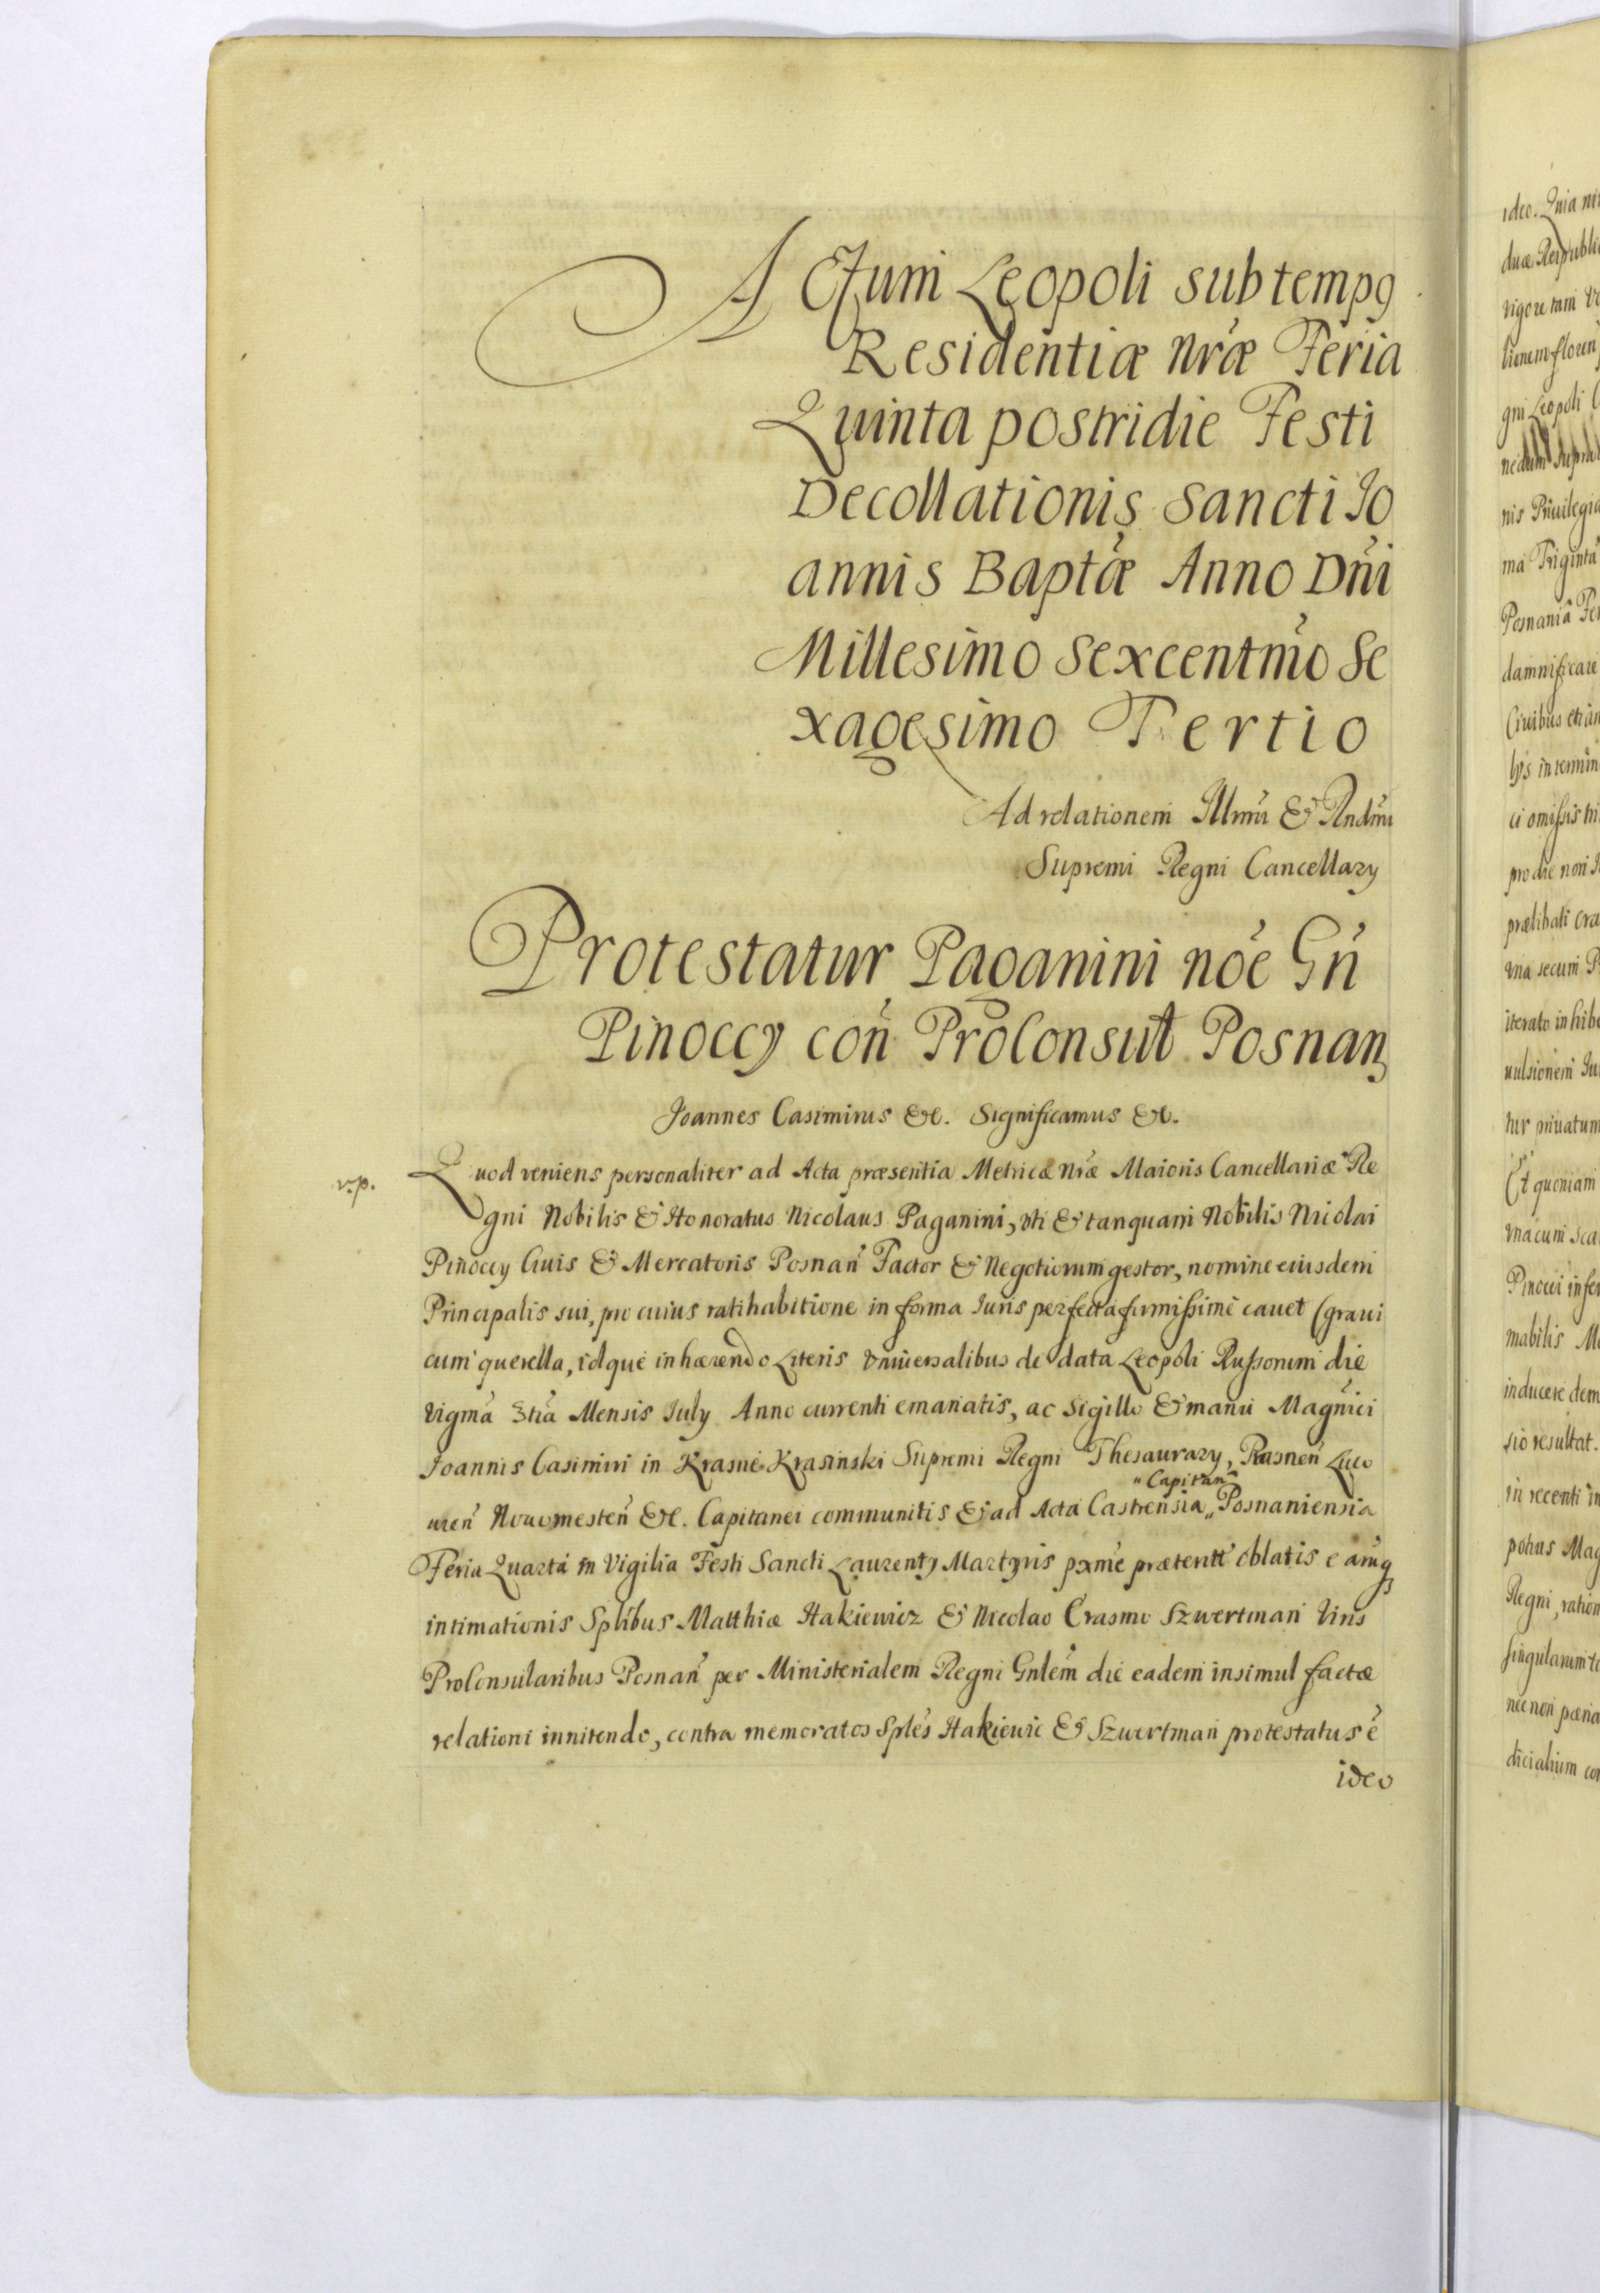 Actum Leopoli sub temp9
Residentiæ nræ Feria
Quinta postridie Festi
Decollationis Sancti Jo
annis Baptæ Anno Dni
Millesimo Sexcentmo Se
xagesimo Tertio
Ad relationem Illmi & Rndmi
Supremi Regni Cancellary
Protestatur Paganini noe Gn
Pinoccy con ProConsul Posnan
Joannes Casimirus &c. Significamus &c.
Quod veniens personaliter ad Acta præsentia Metricæ nræ Maioris Cancellariæ Re
v.p.
gni Nobilis & Honoratus Nicolaus Paganini, vti & tanquam Nobilis Nicolai
Pinoccy Ciuis & Mercatoris Posnan Factor & Negotiorum gestor, nomine eiusdem
Principalis sui, pro cuius ratihabitione in forma Iuris perfecta firmissime cauet (graui
cum querella, idque inhærendo Literis Vniuersalibus de data Leopoli Russorum die
vigma 3tia Mensis July Anno currenti emanatis, ac Sigillo & manu Magnici
Joannis Casimiri in Krasne Krasinski Supremi Regni Thesaurary, Pasnen Luco
uien Nouomesten &c. Capitanei communitis & ad Acta Castrensia „Capitan„ Posnaniensia
Feria Quarta in Vigilia Festi Sancti Laurenty Martyris pxme præteritt oblatis e
intimationis Splibus Matthiæ Hakiewicz & Nicolao Erasmo Szwertman Viris
ProConsularibus Posnan per Ministerialem Regni Gnlem die eadem insimul factæ
relationi innitendo, contra memoratos Sples Hakiewic & Szwertman protestatus e
ideo